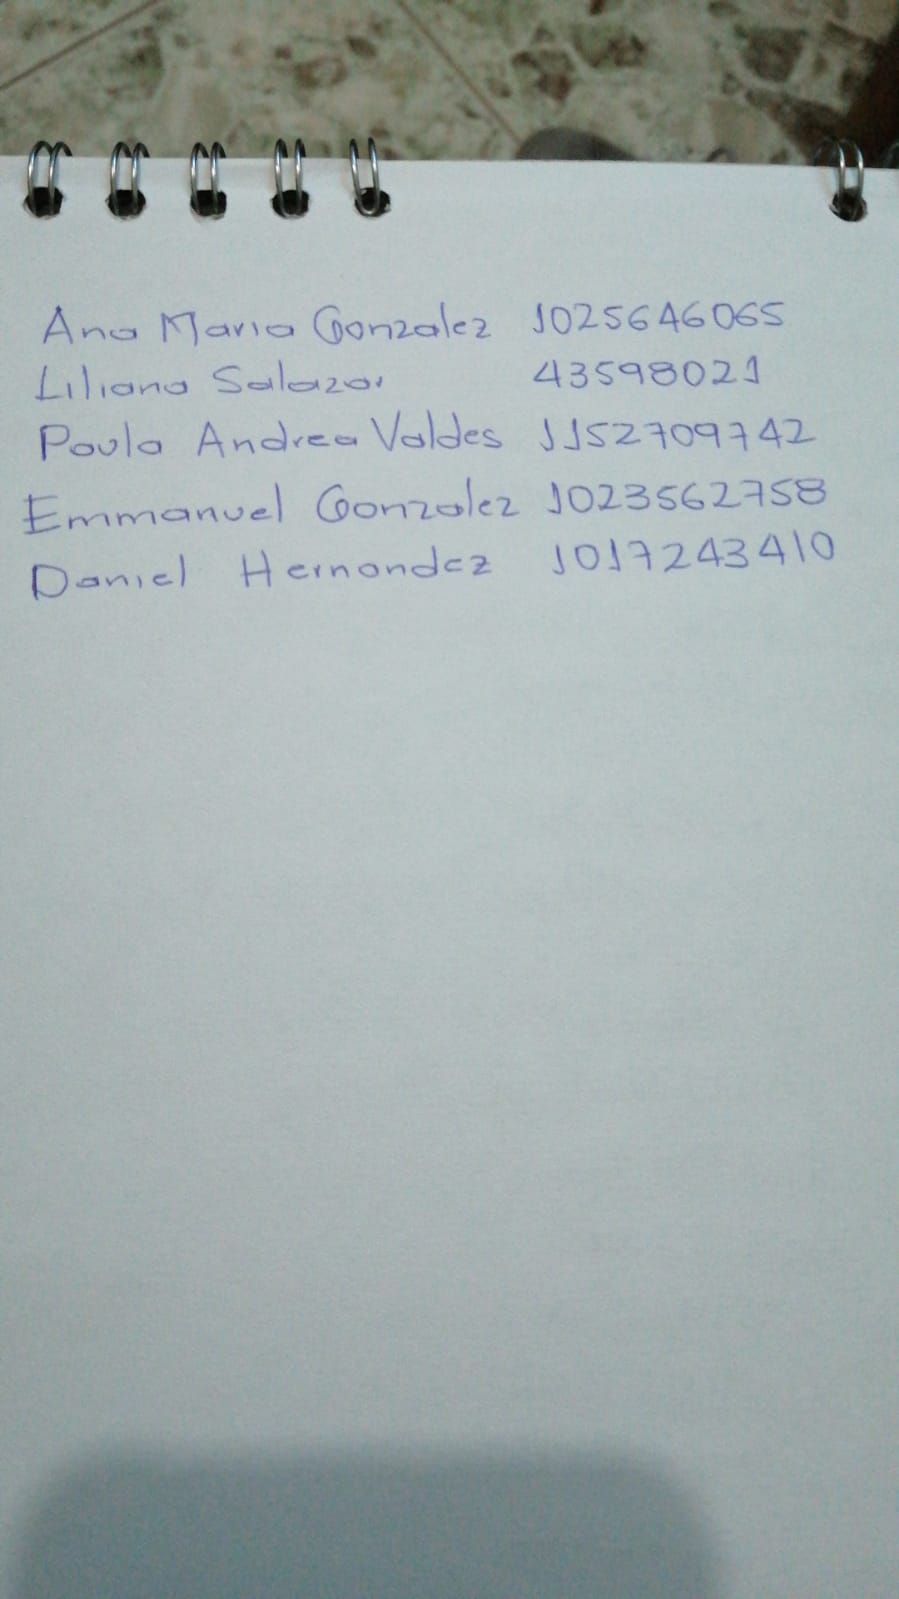 Ana Maria Gonzalez 1025646065
Liliana Salazar 43598021
Paula Andrea Valdes 1152709742
Emmanuel Gonzalez 1023562758
Daniel Hernandez 1017243410